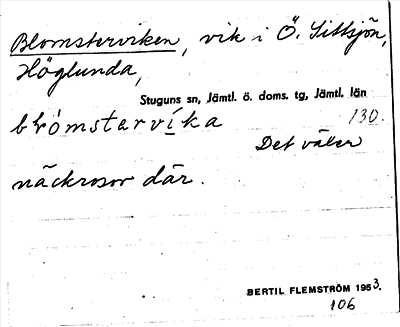 Blomsterviken, vik i Ö. Sittsjön,
Höglunda,
Stuguns sn, Jämtl. ö. doms. tg, Jämtl. län
blómstərvíka 130.
Det växer
näckrosor där.
BERTIL FLEMSTRÖM 1953.
106